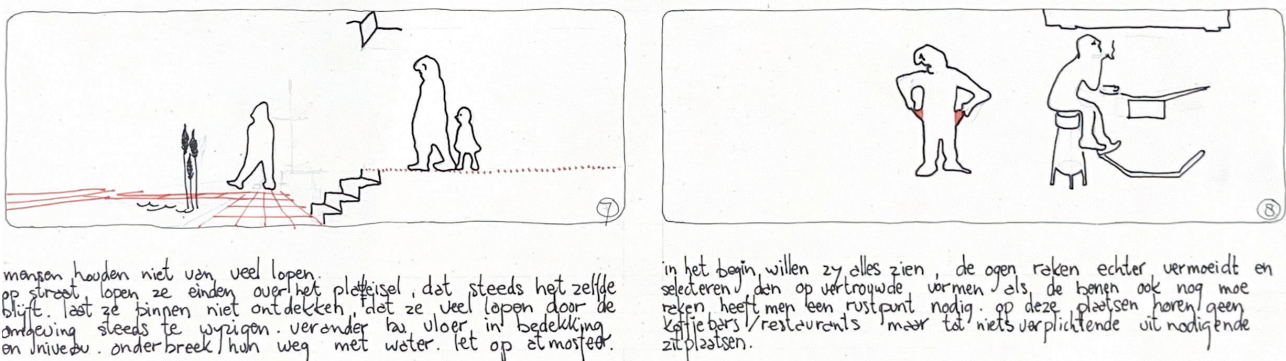 7
mensen houden niet van veel lopen.
op straat lopen ze einden over het plaveisel, dat steeds het zelfde
blijft. laat ze binnen niet ontdekken, dat ze veel lopen door de
omgeving steeds te wyzigen. verander bv vloer in bedekking
en niveau. onderbreek hun weg met water. let op atmosfeer.
8
in het begin willen zy alles zien, de ogen raken echter vermoeidt en
selecteren dan op vertrouwde vormen als, de benen ook nog moe
raken heeft men een rustpunt nodig. op deze plaatsen horen geen
koffiebars/restaurants maar tot niets verplichtende uitnodigende
zitplaatsen.